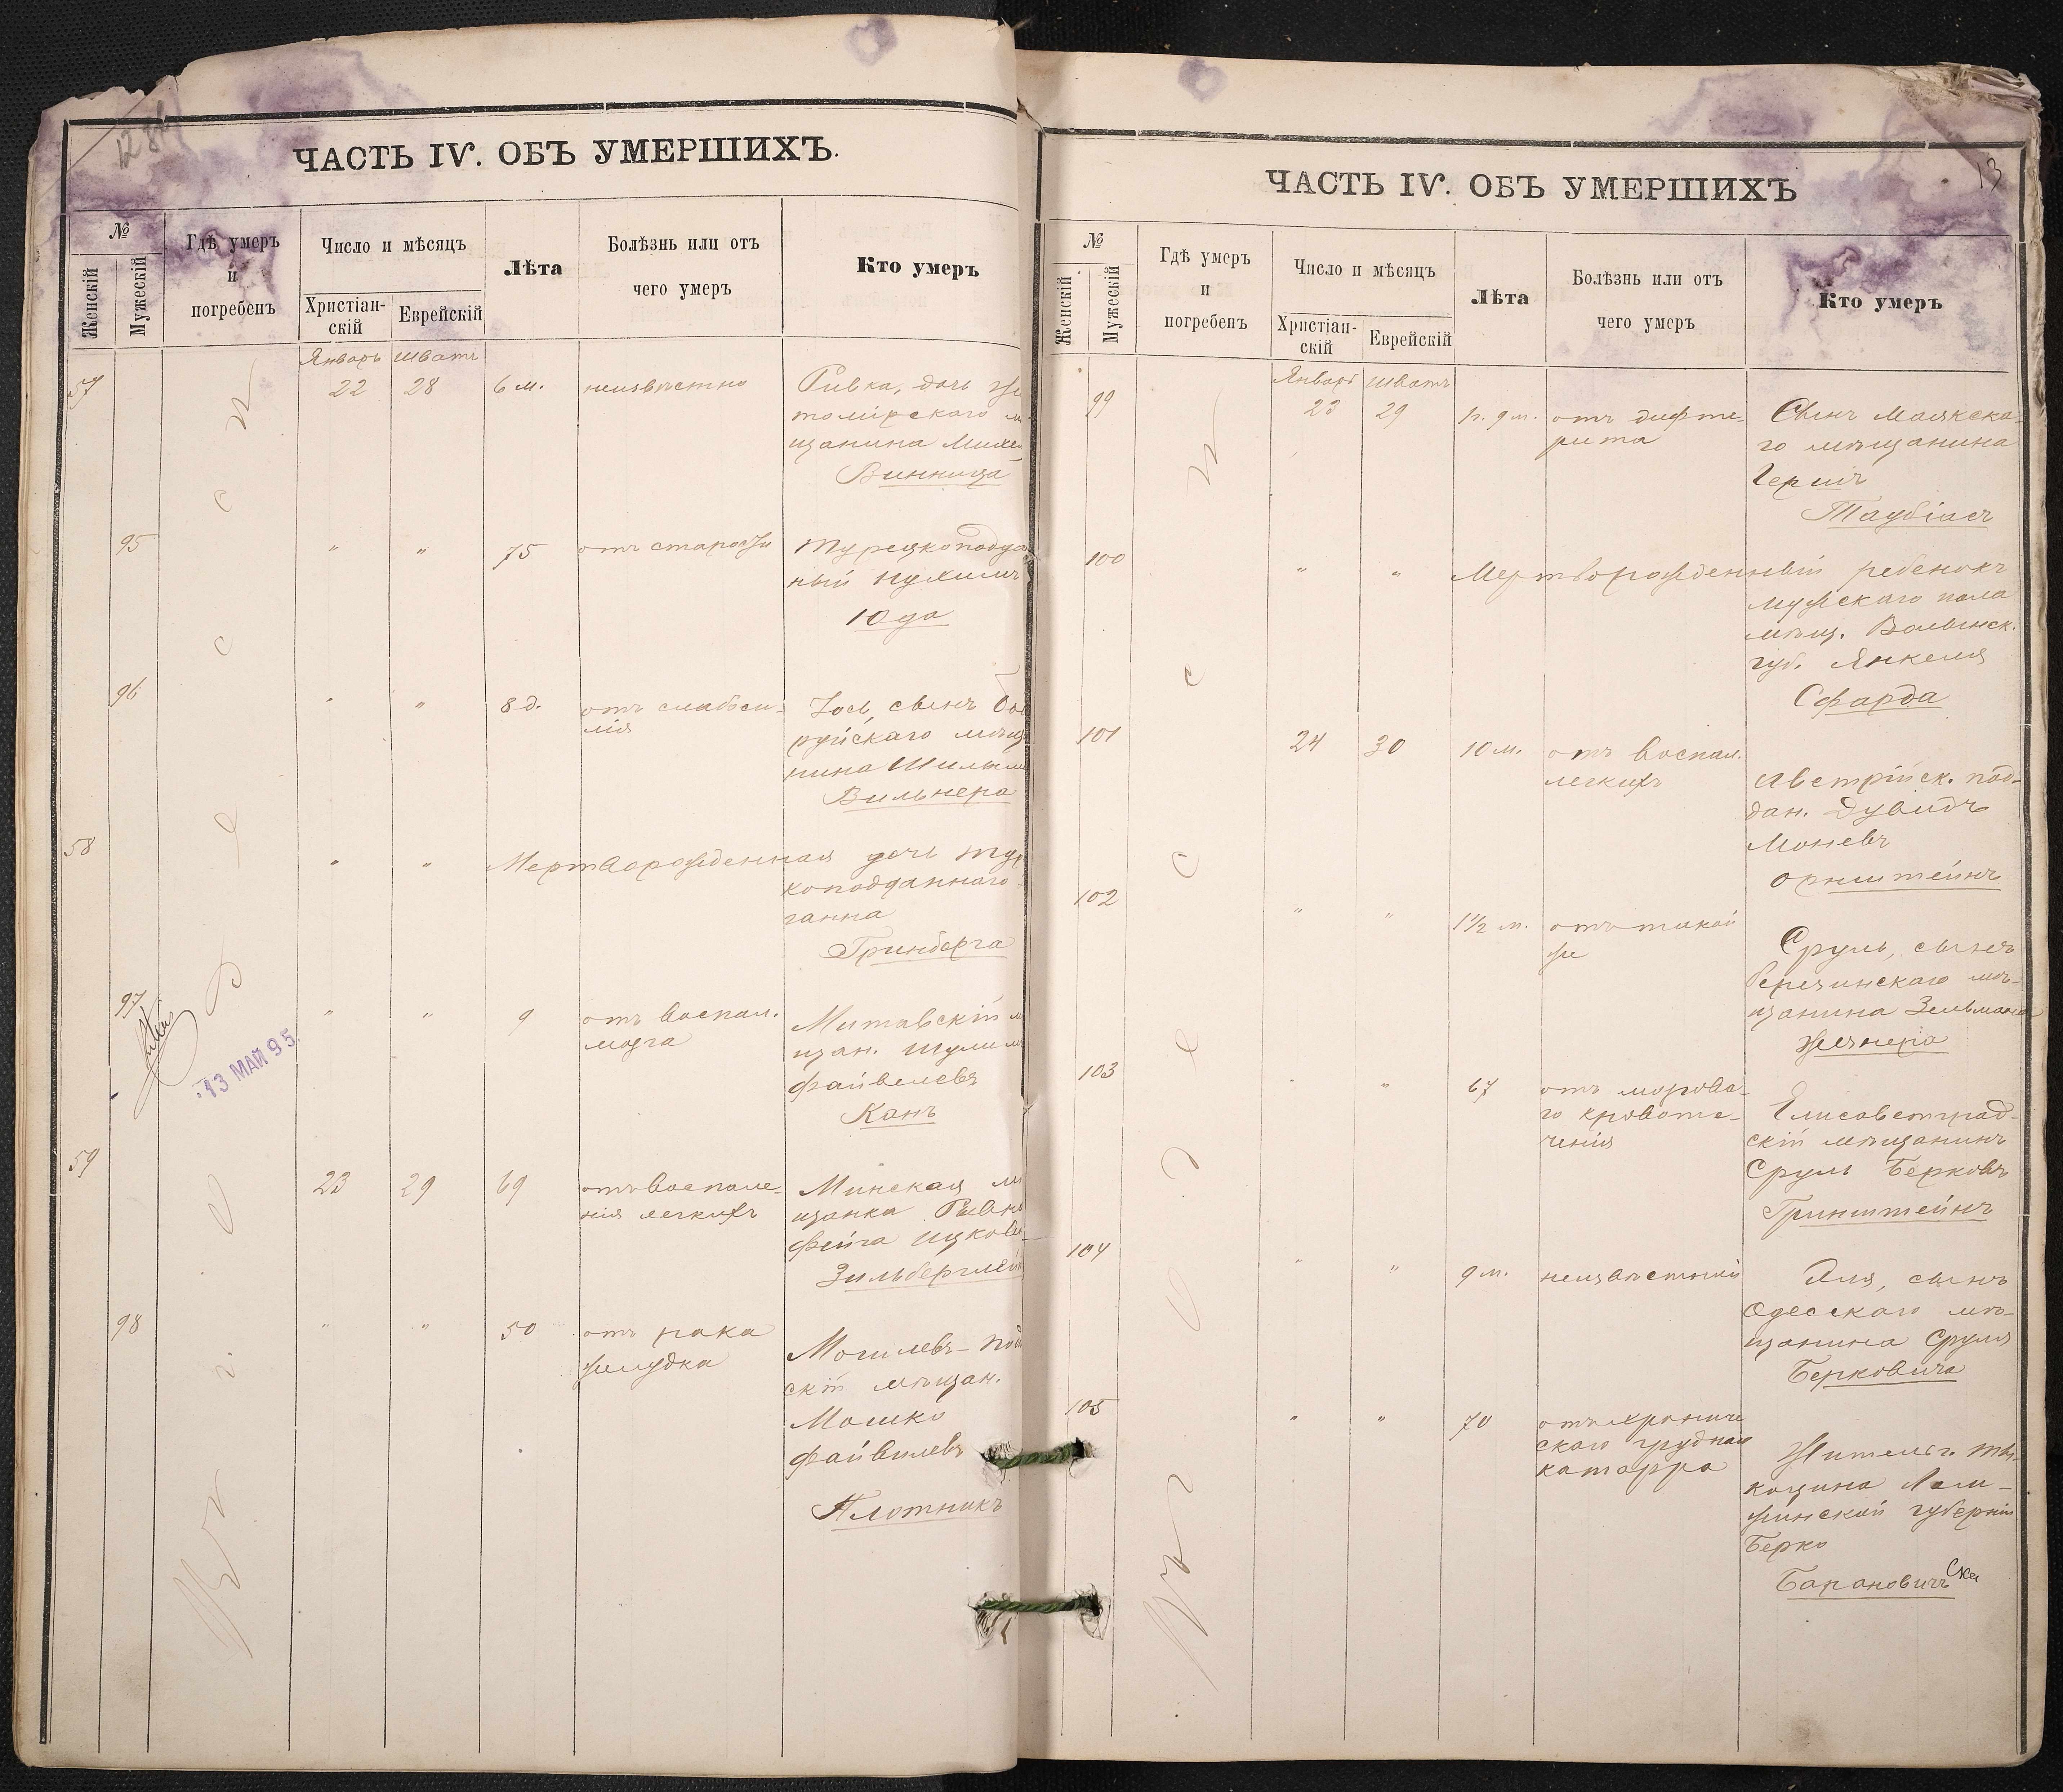 128
ЧАСТЬ IV. ОБЪ УМЕРШИХЪ.
№
Женскій
Мужескій
Гдѣ умеръ
и
погребенъ
Число и мѣсяцъ
Христіан-
скій
Еврейскій
Лѣта
Болѣзнь или отъ
чего умеръ
Кто умеръ
Январь шватъ
57 22 28 6 м. неизвѣстно Ривка, дочь Жи
томірскаго м
щанина Михе
Винница
95 " " 75 отъ старости Турецкоподда
ный Нухимъ
Юда
96 " " 8 д. отъ слабоси-
лія
Іось, сынъ Боб
руйскаго мѣщ
нина Шильм
Вильнера
58 " " Мертворожденная дочь тур
коподданнаго
ганна
Гринберга
97 " " 9 отъ воспал.
мозга
Митавскій м
щан. Шулим
Файвелевъ
Канъ
13 МАЙ 95
59 23 29 69 отъ воспале-
нія легкихъ
Минская м
щанка Ривн
Фейга Ицкова
Зильберглей
98 " " 50 отъ рака
желудка
Могилевъ-под
скій мѣщан.
Мошко
Файвилевъ
Плотникъ
въ г. Одессѣ
13
ЧАСТЬ IV. ОБЪ УМЕРШИХЪ
№
Женскій
Мужескій
Гдѣ умеръ
и
погребенъ
Число и мѣсяцъ
Христіан-
скій
Еврейскій
Лѣта
Болѣзнь или отъ
чего умеръ
Кто умеръ
Январь шватъ
99 23 29 1 г. 9 м. отъ дифте-
рита
Сынъ Маякска-
го мѣщанина
Герша
Таубіасъ
100 " " Мертворожденный ребенокъ
мужскаго пола
мѣщ. Волынск.
губ. Янкеля
Сфарда
101 24 30 10 м. отъ воспал.
легкихъ
Австрійск. под-
дан. Дувидъ
Моневъ
Орнштейнъ
102 " " 1½ м. отъ такой
же
Сруль, сынъ
Березинскаго мѣ-
щанина Зельмана
Жезнера
103 " " 67 отъ мозгова-
го кровоте-
ченія
Елисаветград-
скій мѣщанинъ
Сруль Берковъ
Гринштейнъ
104 " " 9 м. неизвѣстной
Эля, сынъ
Одесскаго мѣ-
щанина Сруля
Берковича
105 " " 70 отъ хрониче
скаго грудная
катарра
Житель г. Ты-
коцина Лом-
жинской губерніи
Берко
Барановичъ
въ Одессѣ